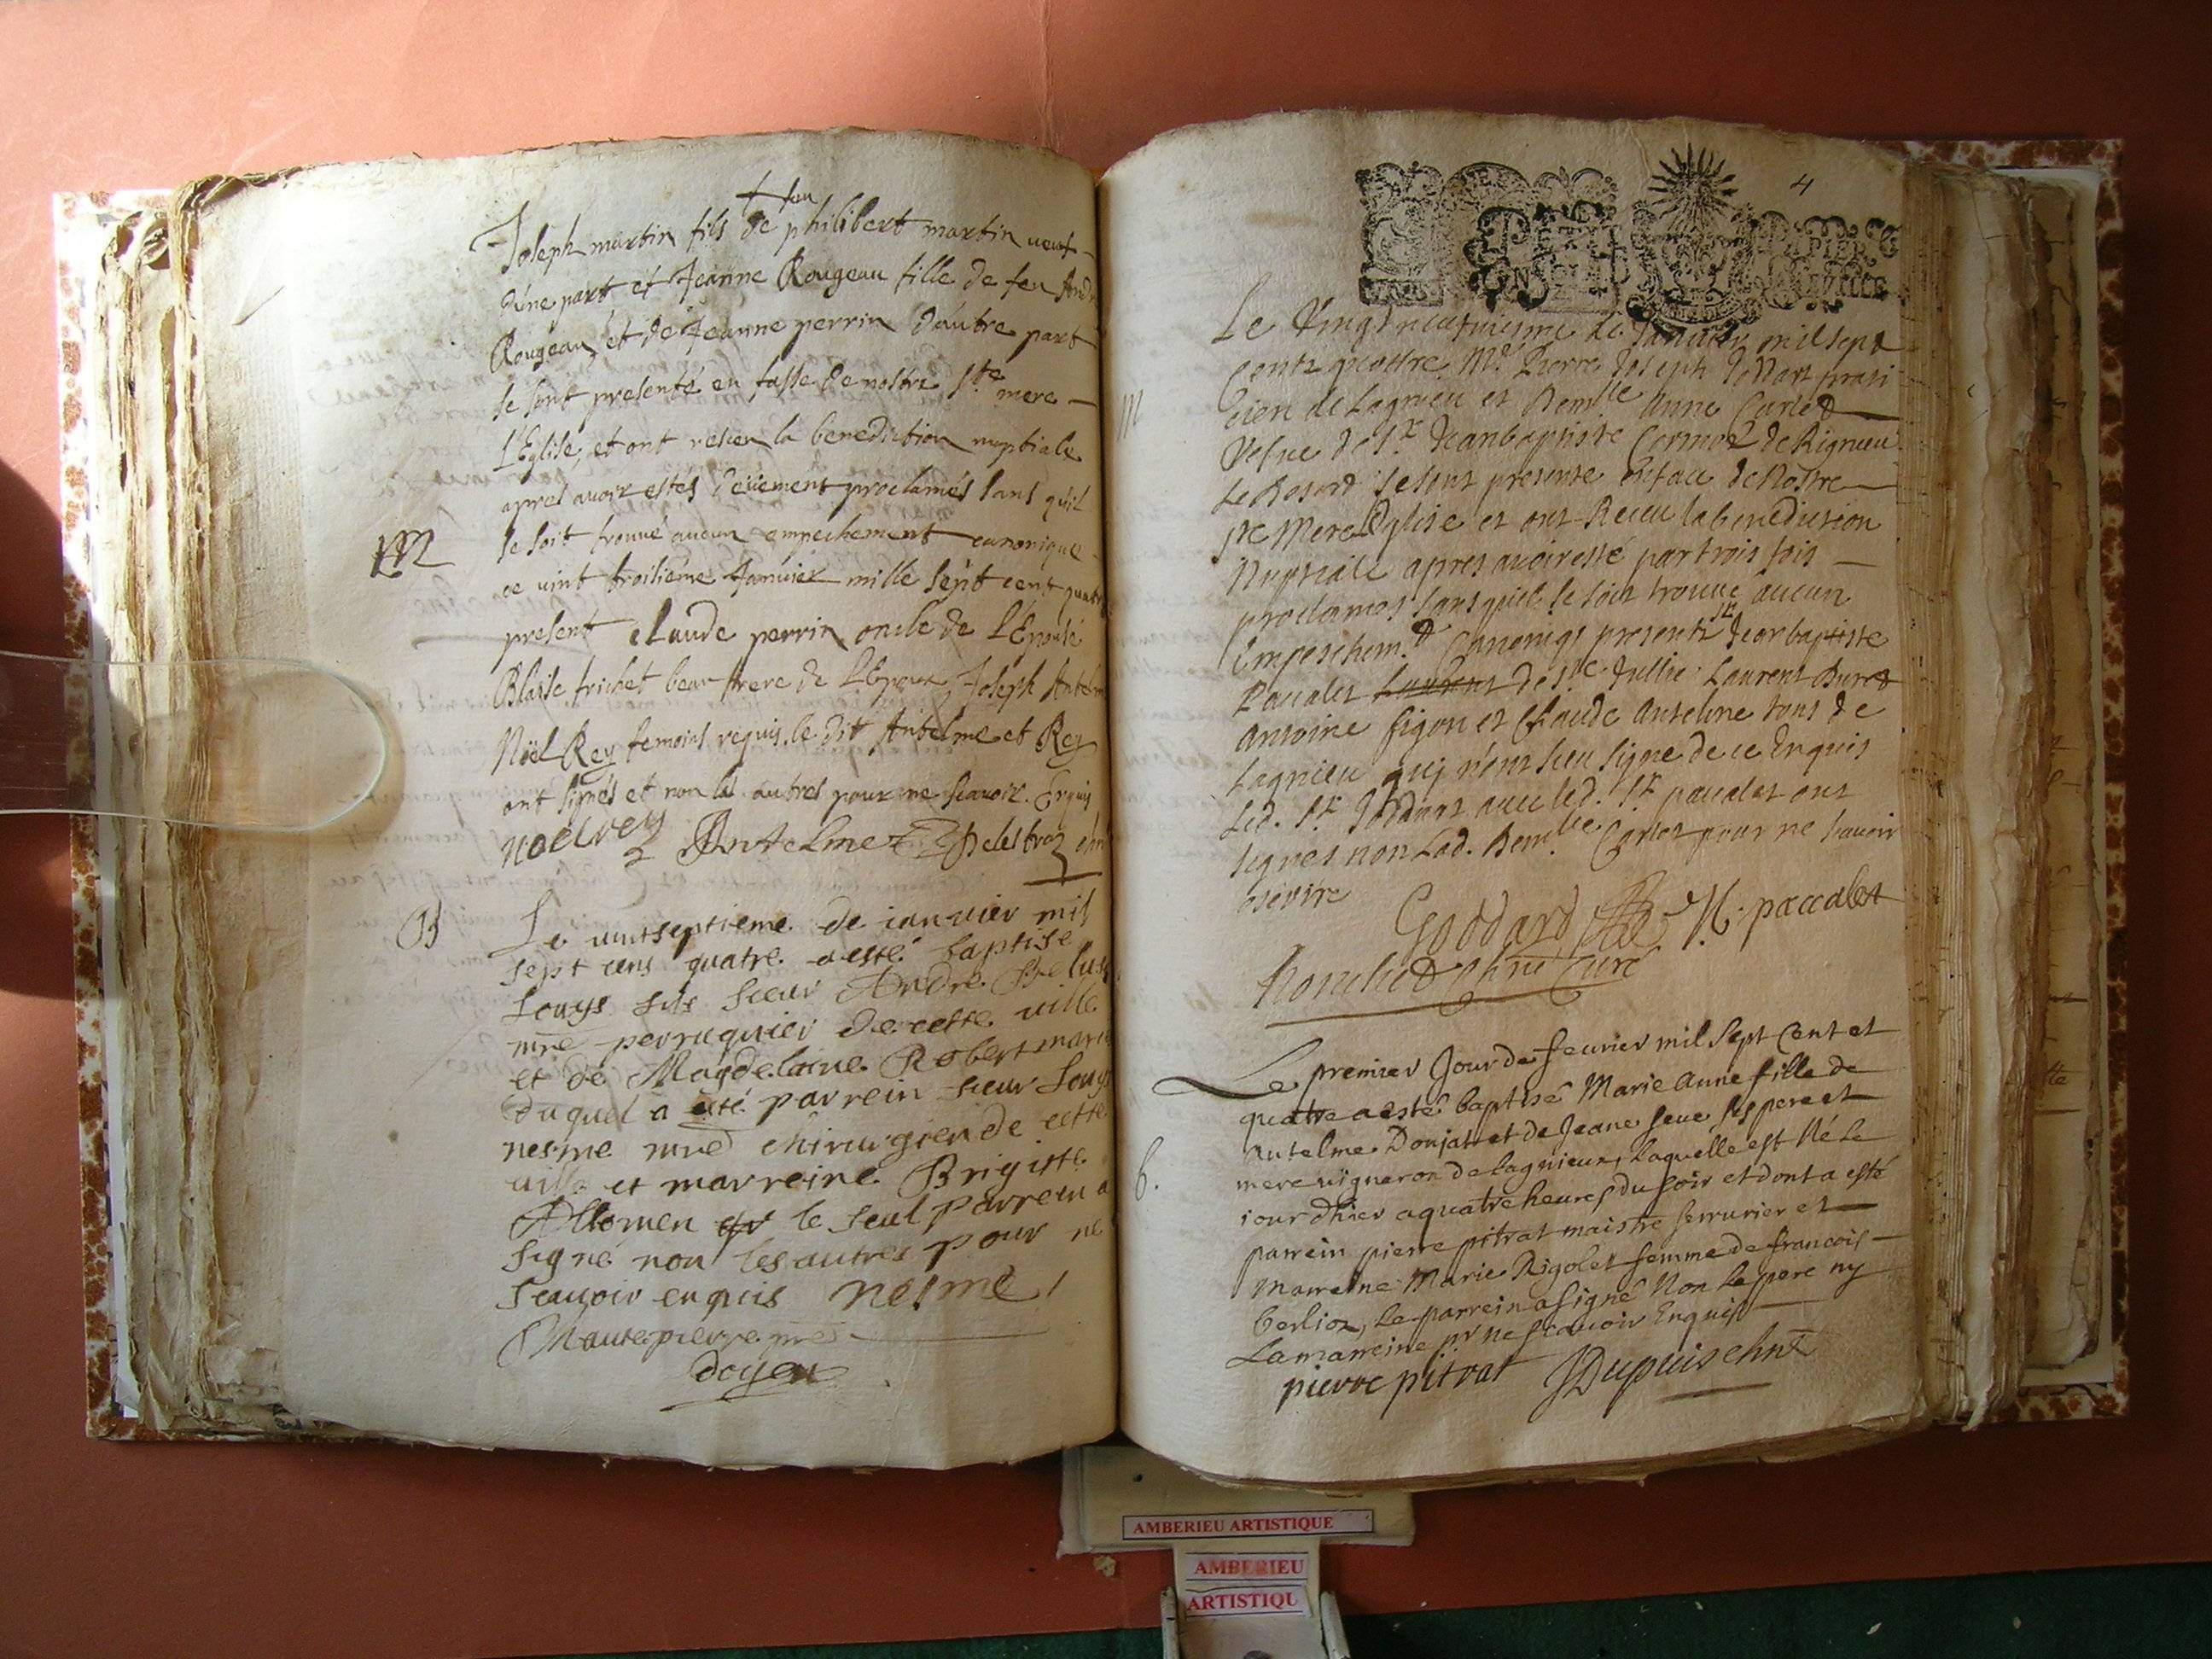 feu
Joseph martin fils de philibert martin veuf
d'une part et Jeanne Rougeau fille de feu
Rougeau, et de Jeanne perrin d'autre part
se sont presenté en fasse de nostre Ste mere
L'Eglise, et ont receu la benediction nuptiale
apres avoir estés deüement proclamés sans qu'il
M
se soit trouvé aucun empechement canonique
ce vint troisieme Janvier mille sept cent quatre
present claude perrin oncle de L'Epouse
Blaise frichet beau frere de L'Epoux Joseph Antelme
Noël Rey temoins requis, le dit Antelme et Rey
ont signés et non les autres pour ne scavoir. Enquis
noel rey Antelme
B
Le vintseptieme de ianvier mil
sept cens quatre a esté baptise
Louys fils sieur André
mre perruquier de cette ville
et de Magdelaine Robert marie
duquel a eté parrein sieur Louys
nesme mre chirurgien de cette
ville et marreine Brigitte
Allomen le seul parrein a
signé non les autres pour ne
scavoir enquis nesme
Mantepierre
doyen
4
Le Vingt neufviesme de Janvier mil sept
M
Centz quattre Me Pierre Joseph Goddart prati
cien de Lagnieu et Demlle Anne Carlet
Vefve de Sr Jeanbaptiste Cormoz de Rignieu
Le desert se sont presente en face de Nostre
Ste Mere Eglise et ont Receu la benediction
Nuptiale apres avoir esté par trois fois
proclames sans quil se soit trouve aucun
Sr
Empeschemt Canoniq presentz Jeanbaptiste
Pacalet Laurent de Ste Jullie Laurent Buret
Antoine figon et Claude Antelme tous de
Lagnieu qui n'ont sceu signe de ce Enquis
Led. Sr Goddart avec led. Sr pacalet ont
signes non Lad. Demlle Carlet pour ne scavoir
escrire
Goddard paccalet
Curé
Le premier Jour de fevrier mil sept Cent et
quatre a esté baptisé Marie Anne fille de
Antelme Donjat et de Jeane seve ses pere et
mere vigneron de Lagnieux, laquelle est Né Le
b.
iour d'hier a quatre heures du soir et dont a esté
parrein pierre pitrat maistre serrurier et
marreine Marie Rigolet femme de francois
berlioz, Le parrein a signé Non Le pere ny
La marreine pr ne scavoir Enquis
pierre pitrat JDupuis
AMBERIEU ARTISTIQUE
AMBERIEU
ARTISTIQU